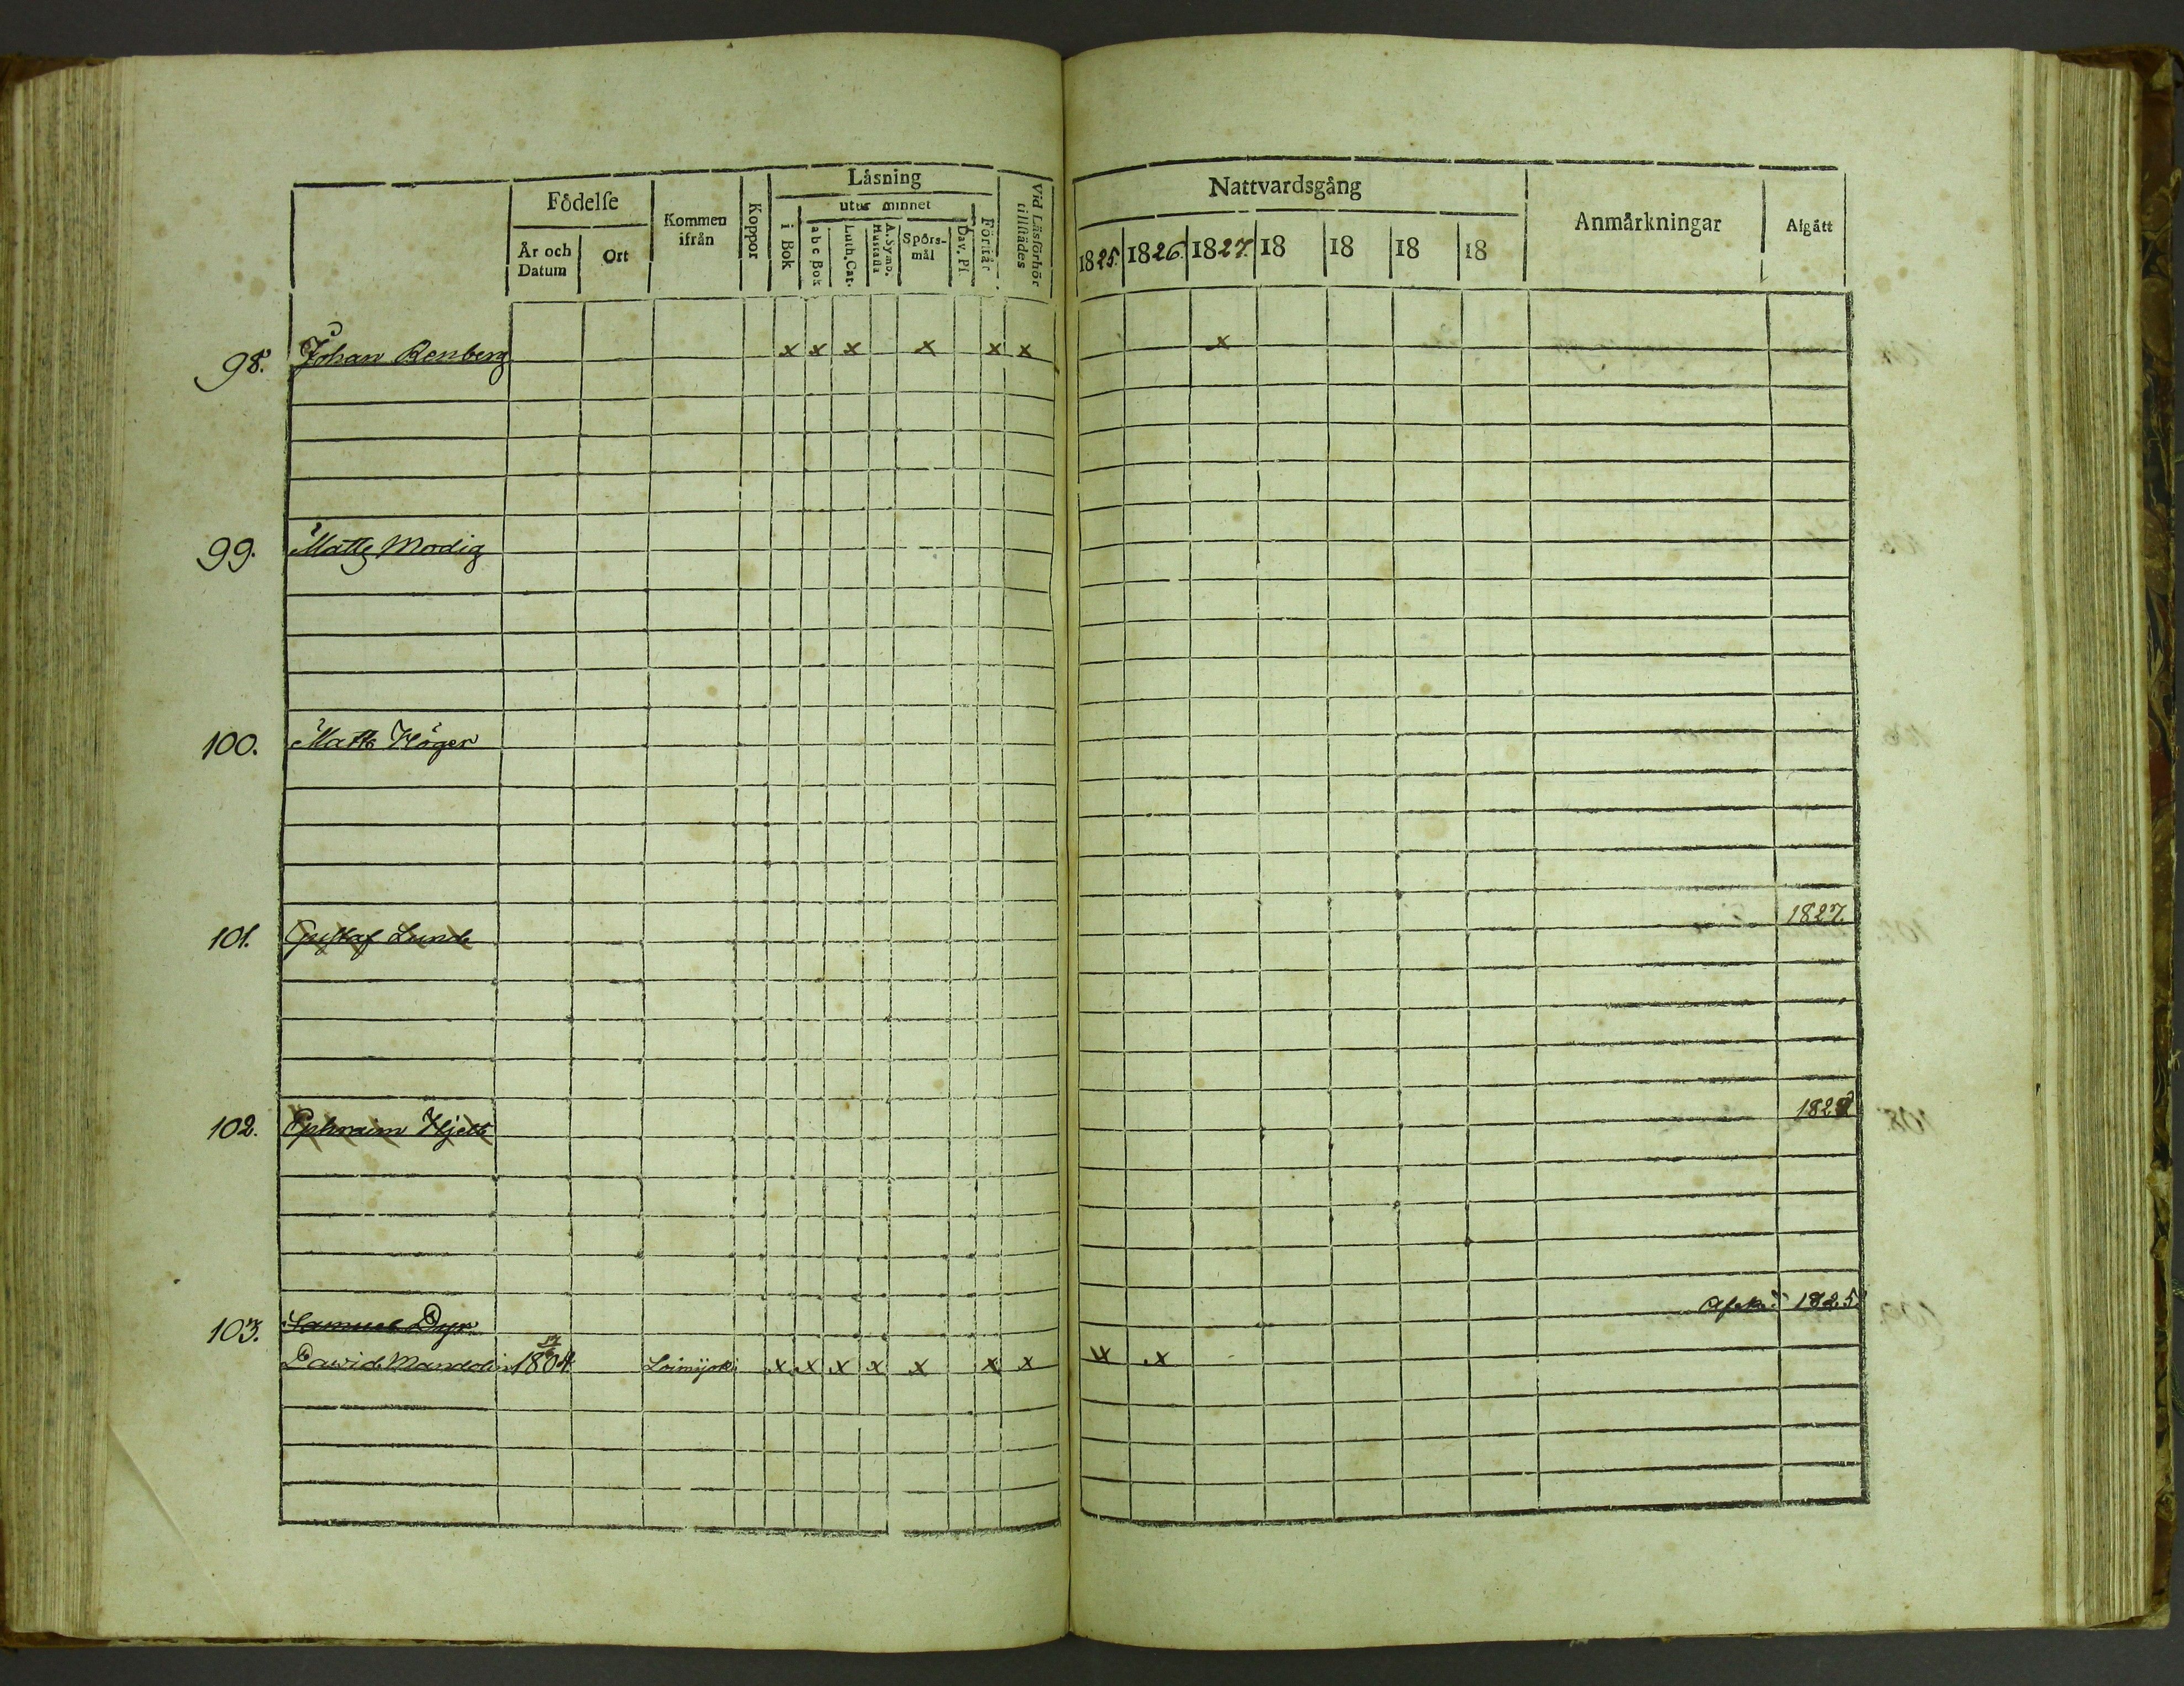 Födelse
Kommen ifrån
Koppor
Låsning
Vid Läsförhör tillstädes
Nattvardsgång
Anmårkningar
Afgått
År och Datum
Ort
i Bok
utur minnet
Förstår
a b c Bok
Luth. Cat.
A. Symb. Hustafla
Spörs-mål
Dav. Ps
1825. 1826. 1827. 18 18 18 18
98. Johan Renberg x x x x x x x
99. Matts Modig
100. Matts Höger
101. Gustaf Lund 1827.
102. Ephraim Hjelt 1827
103. Samuel Dyr Afsk. 1825.
David Mandolin 1804 Loimijoki x x x x x x x x x